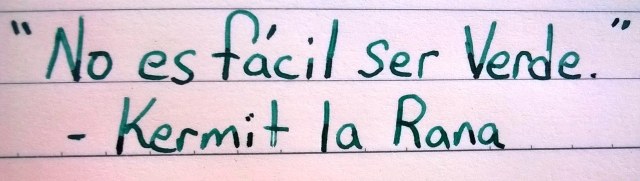 "No es fácil ser Verde."
- Kermit la Rana